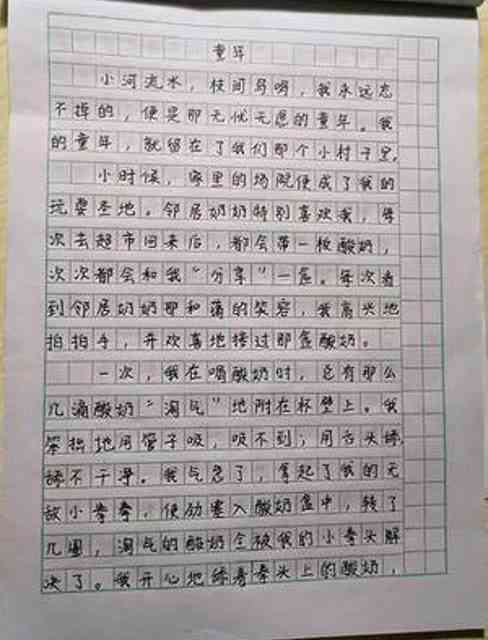 童年
小河流水，枝间鸟鸣，我永远忘
不掉的，便是那无忧无虑的童年。我
的童年，就留在了我们那个小村子里。
小时候，家里的场院便成了我的
玩耍圣地。邻居奶奶特别喜欢我，每
次去超市回来后，都会带一板酸奶，
次次都会和我“分享”一盒。每次看
到邻居奶奶那和蔼的笑容，我高兴地
拍拍手，开欢喜地接过那盒酸奶。
一次，我在喝酸奶时，总有那么
几滴酸奶“淘气”地附在杯壁上。我
笨拙地用管子吸，吸不到；用舌头舔，
舔不干净。我气急了，拿起了我的无
敌小拳拳，使劲塞入酸奶盒中，转了
几圈，淘气的酸奶全被我的小拳头解
决了。我开心地舔着拳头上的酸奶，